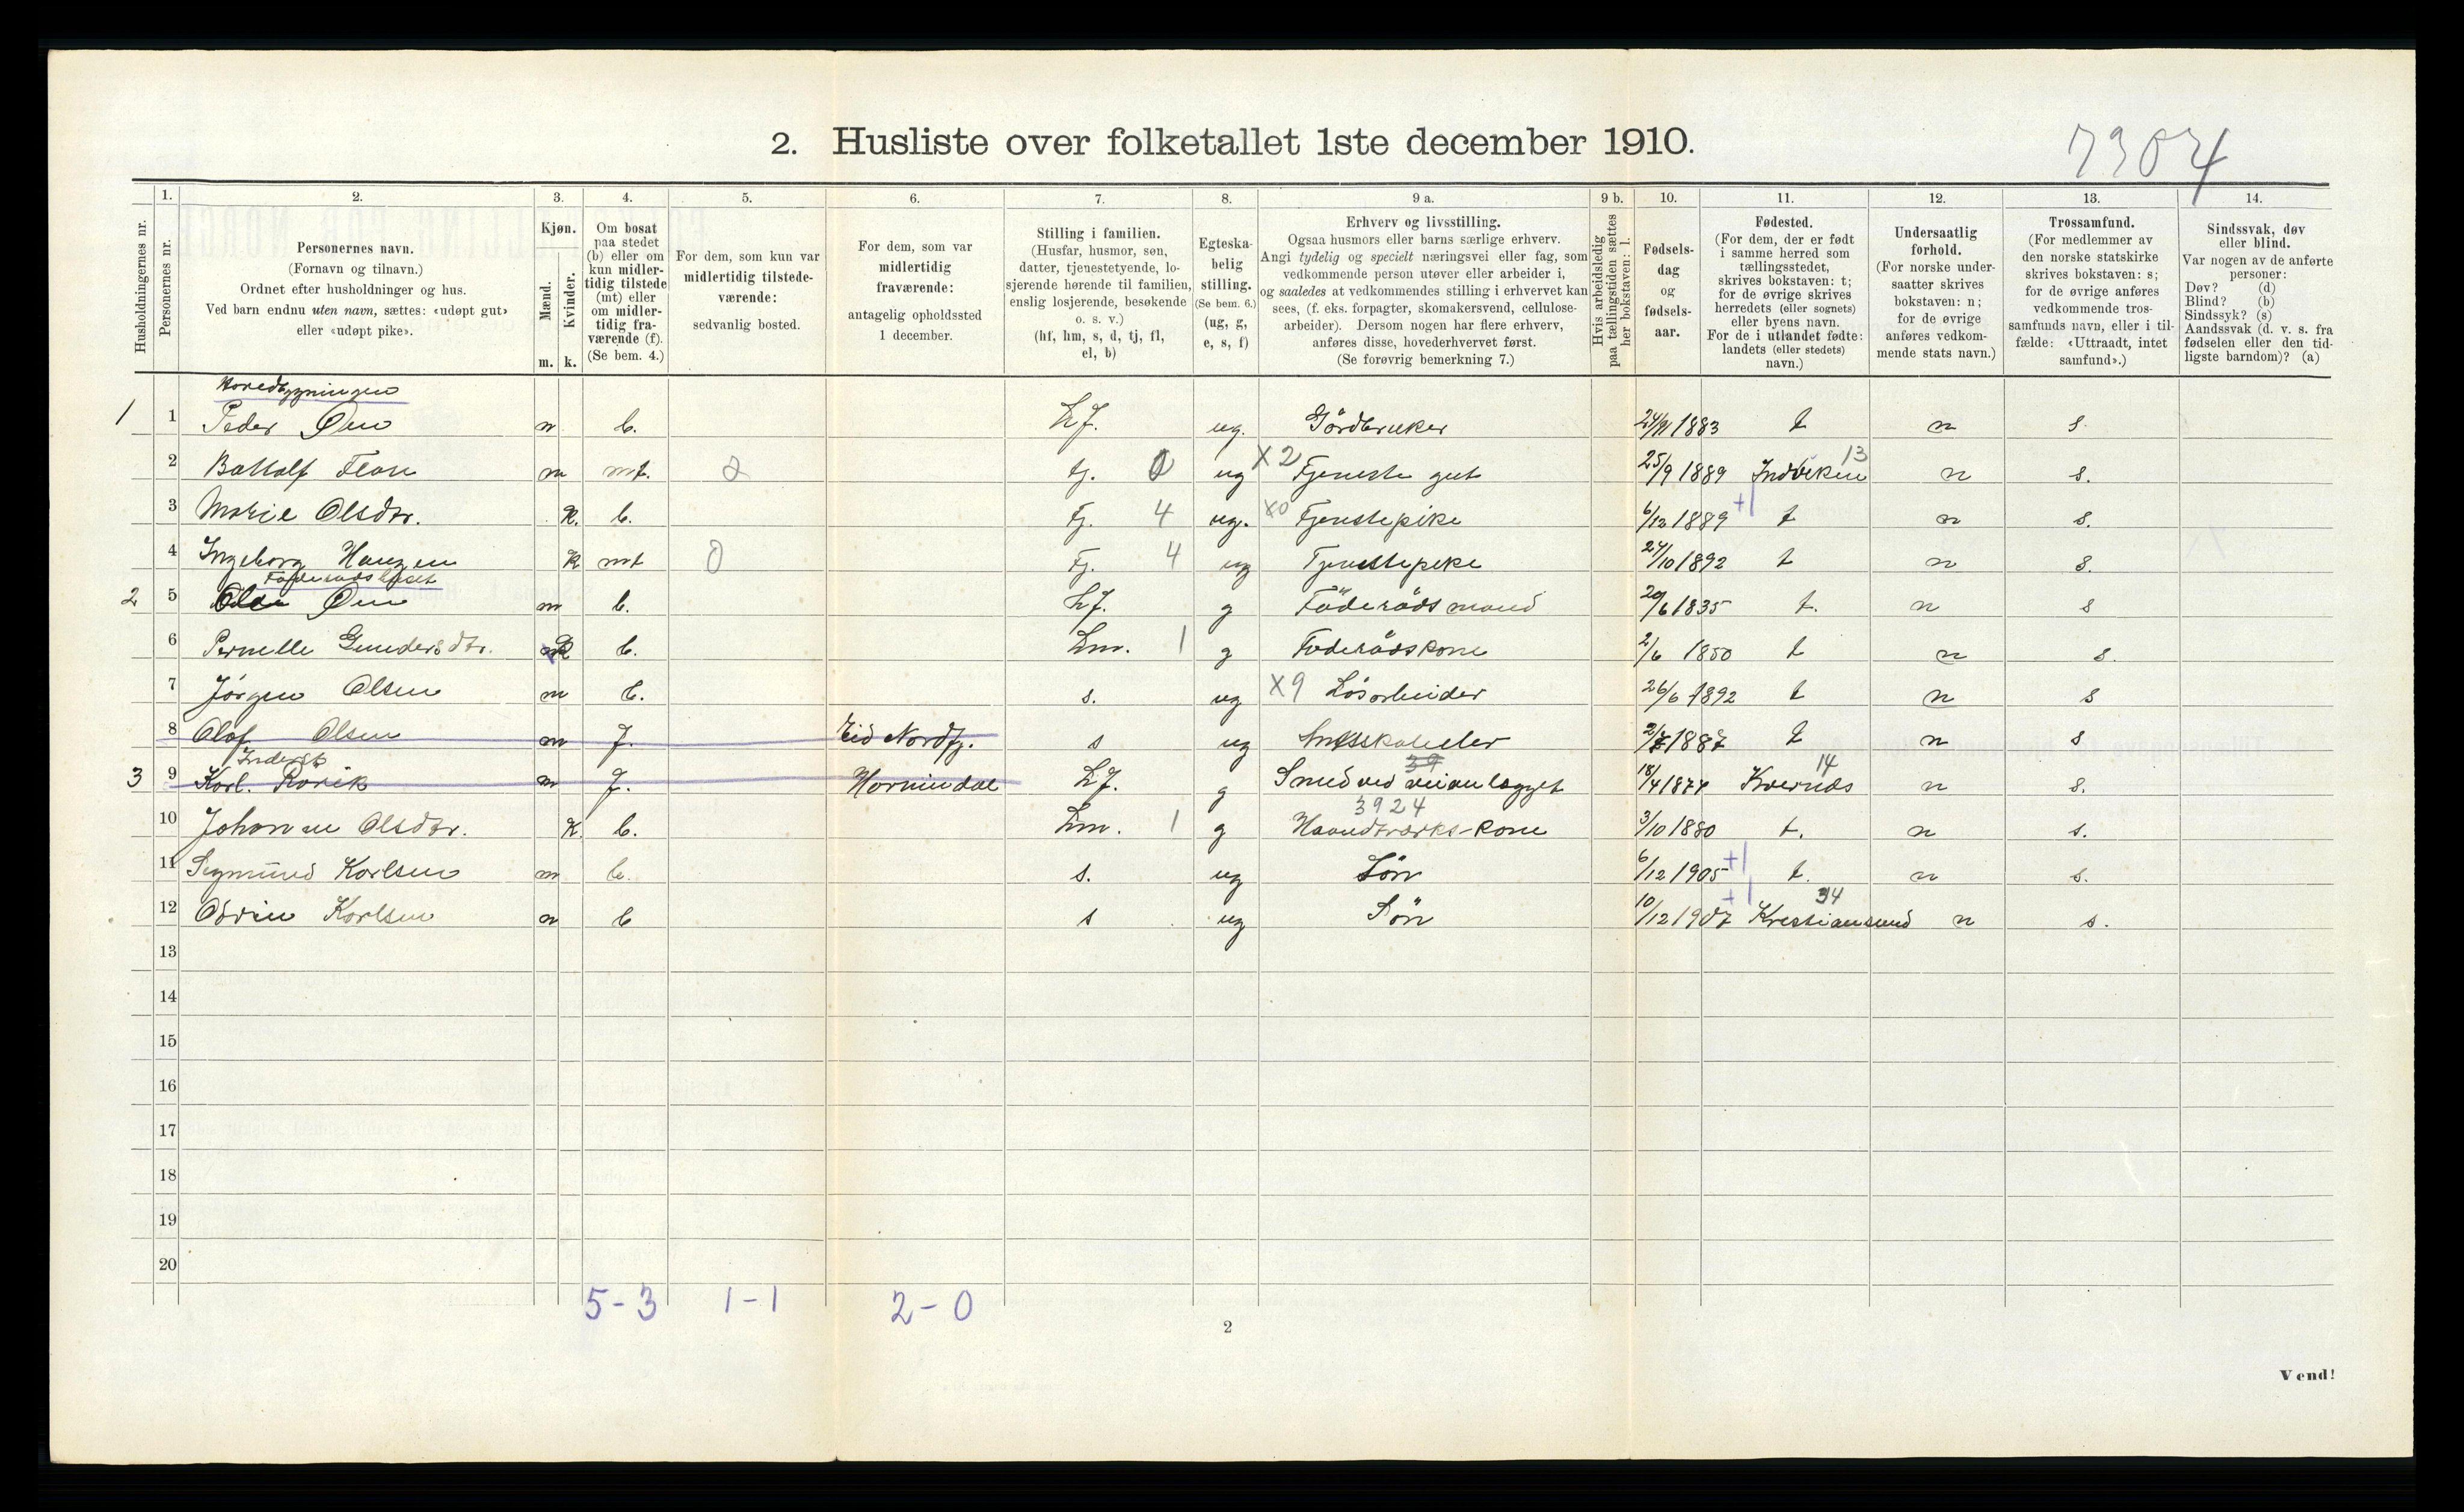 2. Husliste over folketallet 1ste december 1910.
7304
1. 2. 3. 4. 5. 6. 7. 8. 9 a. 9 b. 10. 11. 12. 13. 14.
Husholdningernes nr.
Personernes nr.
Personernes navn.
(Fornavn og tilnavn.)
Ordnet efter husholdninger og hus.
Ved barn endnu uten navn, sættes: «udøpt gut»
eller «udøpt pike».
Kjøn.
Mænd.
Kvinder.
m. k.
Om bosat
paa stedet
(b) eller om
kun midler-
tidig tilstede
(mt) eller
om midler-
tidig fra-
værende (f).
(Se bem. 4.)
For dem, som kun var
midlertidig tilstede-
værende:
sedvanlig bosted.
For dem, som var
midlertidig
fraværende:
antagelig opholdssted
1 december.
Stilling i familien.
(Husfar, husmor, søn,
datter, tjenestetyende, lo-
sjerende hørende til familien,
enslig losjerende, besøkende
o. s. v.)
(hf, hm, s, d, tj, fl,
el, b)
Egteska-
belig
stilling.
(Se bem. 6.)
(ug, g,
e, s, f)
Erhverv og livsstilling.
Ogsaa husmors eller barns særlige erhverv.
Angi tydelig og specielt næringsvei eller fag, som
vedkommende person utøver eller arbeider i,
og saaledes at vedkommendes stilling i erhvervet kan
sees, (f. eks. forpagter, skomakersvend, cellulose-
arbeider). Dersom nogen har flere erhverv,
anføres disse, hovederhvervet først.
(Se forøvrig bemerkning 7.)
Hvis arbeidsledig
paa tællingstiden sættes
her bokstaven: l.
Fødsels-
dag
og
fødsels-
aar.
Fødested.
(For dem, der er født
i samme herred som
tællingsstedet,
skrives bokstaven: t;
for de øvrige skrives
herredets (eller sognets)
eller byens navn.
For de i utlandet fødte:
landets (eller stedets)
navn.)
Undersaatlig
forhold.
(For norske under-
saatter skrives
bokstaven: n;
for de øvrige
anføres vedkom-
mende stats navn.)
Trossamfund.
(For medlemmer av
den norske statskirke
skrives bokstaven: s;
for de øvrige anføres
vedkommende tros-
samfunds navn, eller i til-
fælde: «Uttraadt, intet
samfund».)
Sindssvak, døv
eller blind.
Var nogen av de anførte
personer:
Døv? (d)
Blind? (b)
Sindssyk? (s)
Aandssvak (d. v. s. fra
fødselen eller den tid-
ligste barndom)? (a)
Hovedbygningen
1 1 Peder Øen m b. hf. ug. Gårdbruker 24/11 1883 t n s.
2 m mt. 2 tj. ug X2 Tjeneste gut 25/9 1889 Indviken 13 n s.
3 Marie Olsdtr. K. b. Tj. 4 ug. X0 Tjenstepike 6/12 1889 +1 t n s.
4 Ingeborg Hansen K mt 0 Tj. 4 ug Tjenestepike 24/10 1892 t n s.
Føderådshuset
2 5 Ole Øen m b. hf. g Föderådsmand 20/6 1835 t. n s
6 Pernelle Gundersdtr. K b. hm. 1 g Föderådskone 2/6 1850 t n s.
7 Jørgen Olsen m b. s. ug X9 Løsarbeider 26/6 1892 t n s
8 Olaf Olsen m f. Eid Nordfj. s ug 1887 t n s
Inderst
3 9 Karl. Rovik m f. Hornindal hf. g 39 Smed ved veianlægget 18/4 1874 Kvernes 14 n s.
10 Johanne Olsdtr. K. b. hm. 1 g 3924 Haandværks-kone 3/10 1880 t. n s.
11 Sigmund Karlsen m b. s. ug Søn 6/12 1905 +1 t. n s.
12 Odvin Karlsen m b s ug Søn 10/12 1907 +1 Kristiansund 34 n s.
13
14
15
16
17
18
19
20
5-3 1-1 2-0
2
Vend!